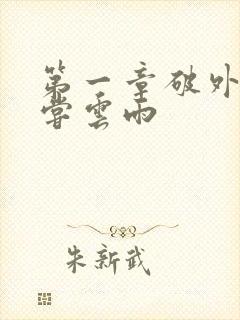 第一章破外
尝雲雨
朱新武